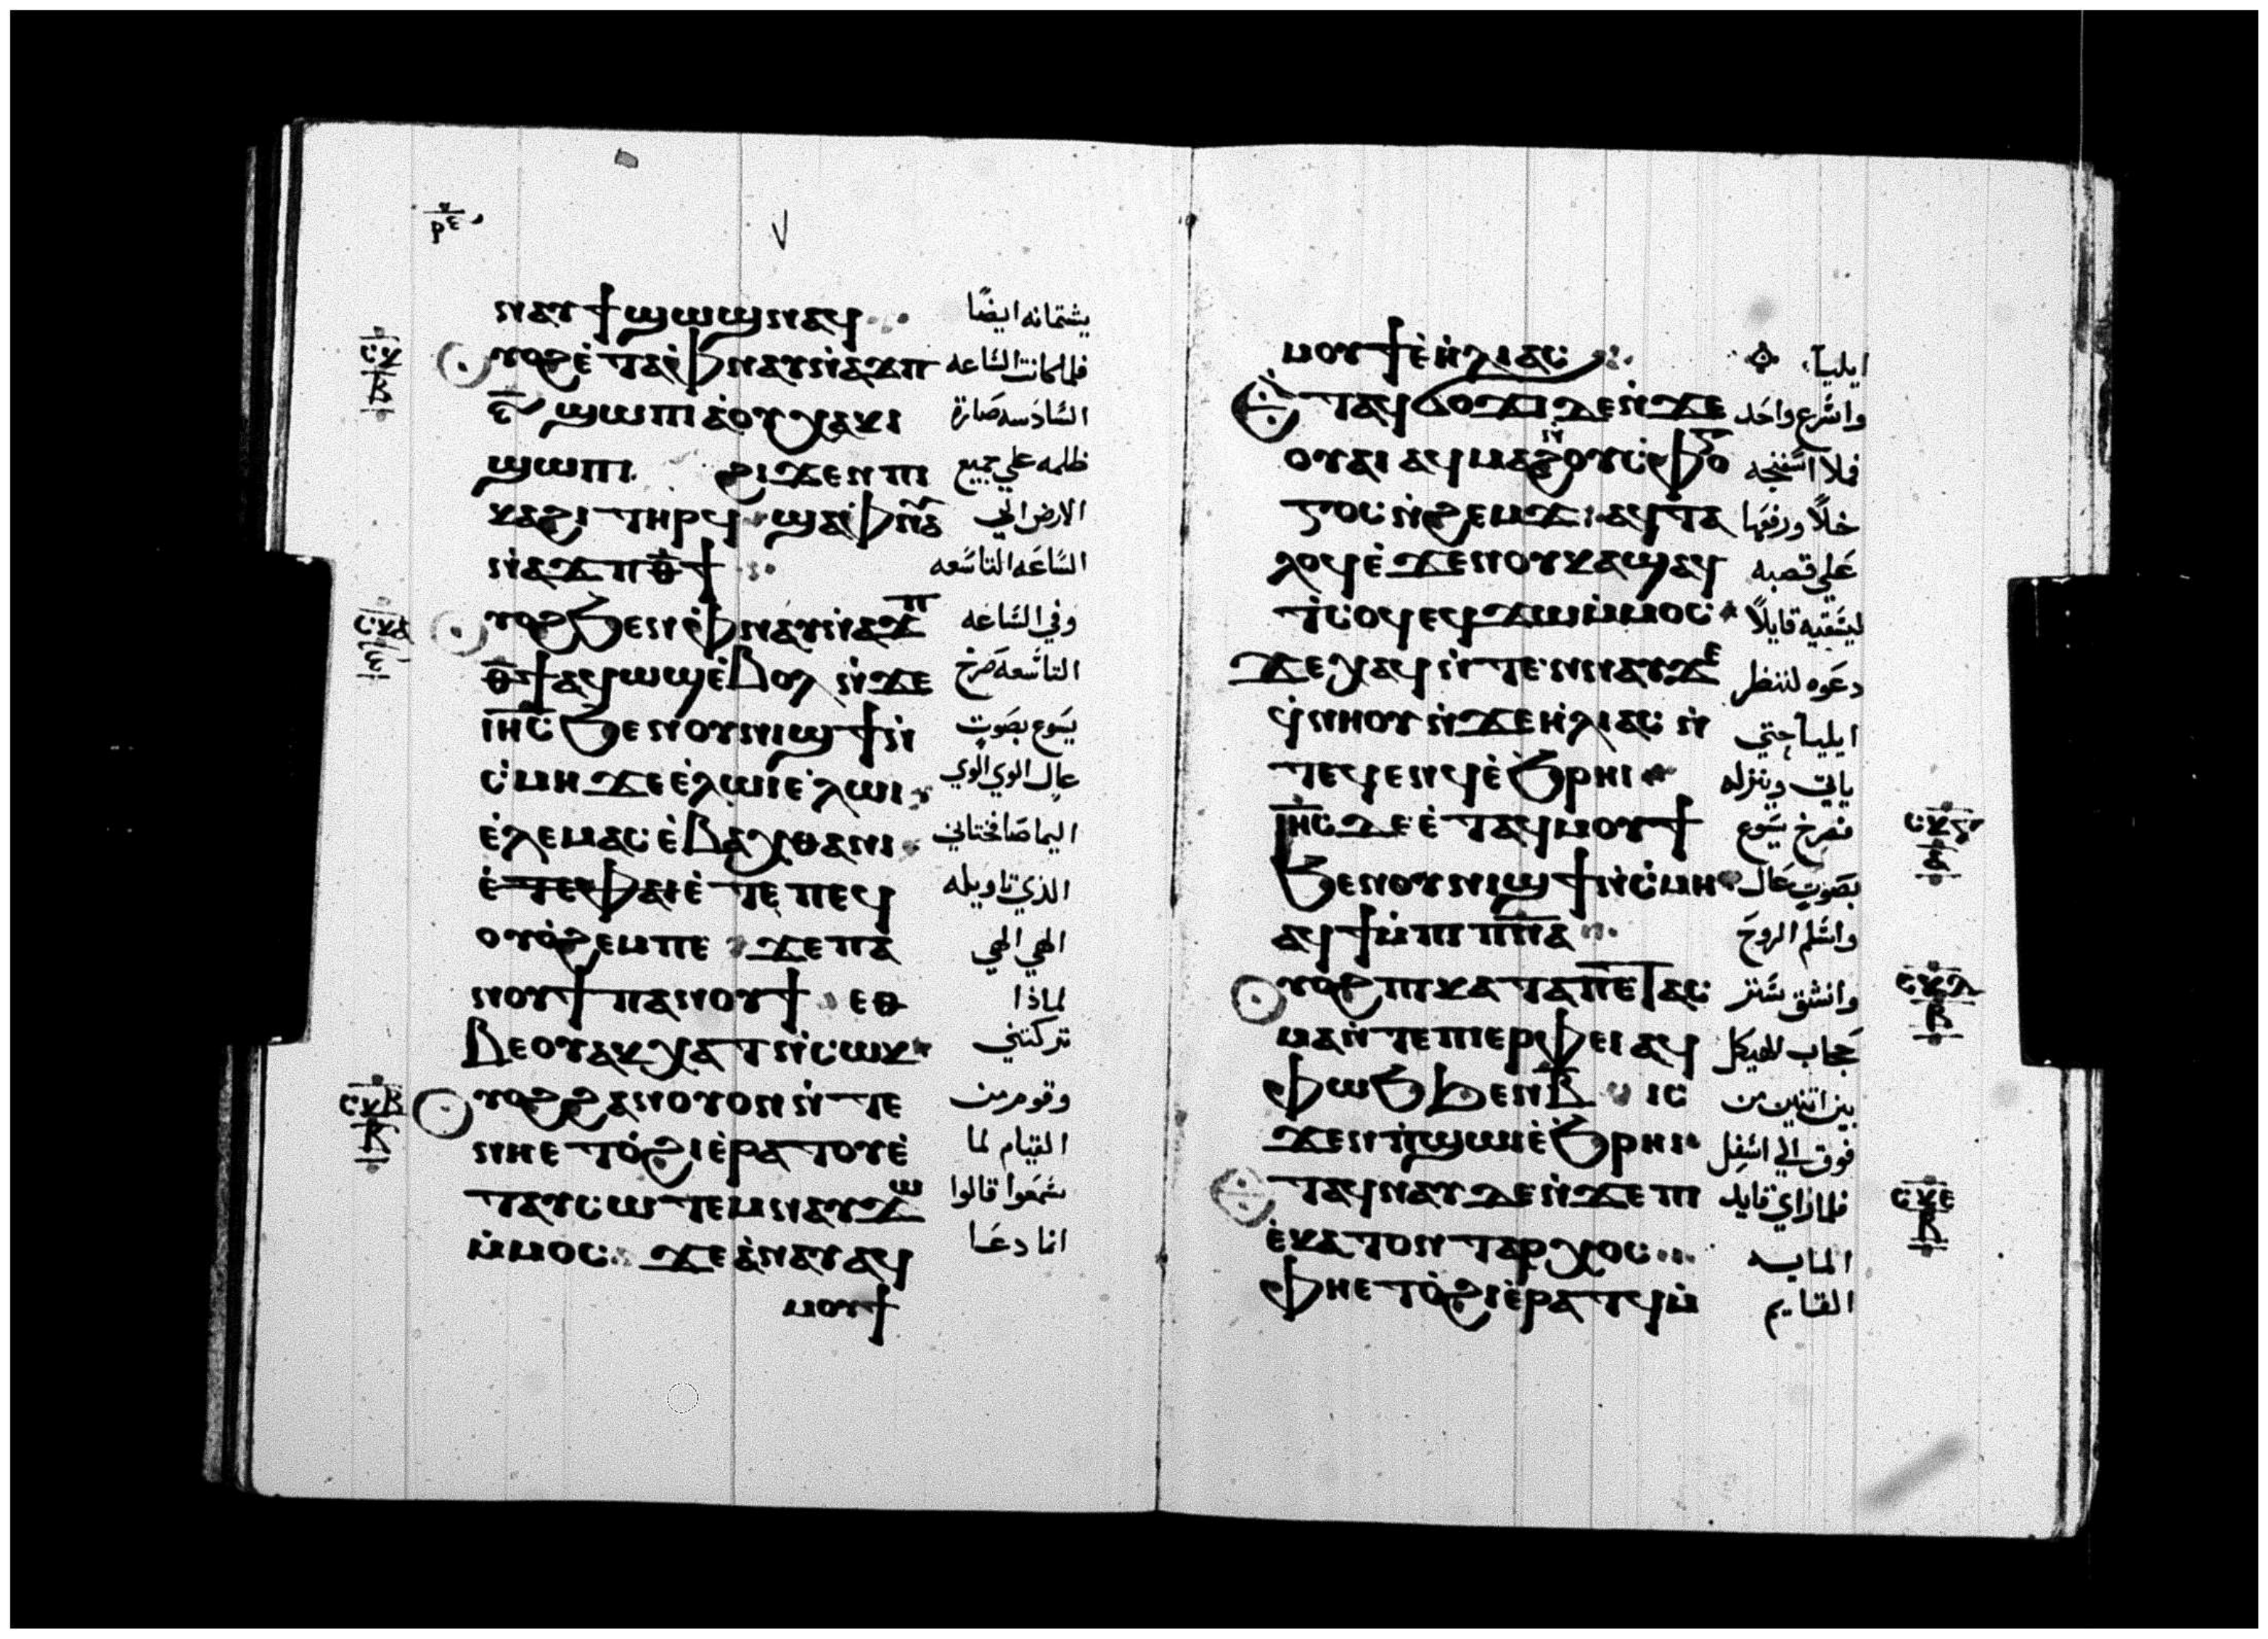 ⲣⲉ
ⲛⲁⲩϯϣⲱϣⲛⲁϥ يشتمانه ايضًا
ⲥⲕ ⲃ
ⲩⲟϩ ⲉⲧⲁⲓⲫⲛⲁⲩⲛⲁϫⲡ فلما كانت الساعه
ⲋ ϣⲱⲡⲓ ⲁⲟⲩⲭⲁⲕⲓ السادسه صارة
ϣⲱⲡⲓ ϩⲓϫⲉⲛ ⲡⲓ ظلمه علي جميع
ⲕⲁϩⲓ ⲧⲏⲣϥ ϣⲁⲫⲛⲁ الارض الي
ⲛⲁϫⲡ ⲑϯ الساعه التاسعه
ⲥⲕⲁ
ⲩⲟϩ ϧⲉⲛ ⲫⲛⲁⲩⲛⲁϫⲡ وفي الساعه
ⲑϯ ⲁϥⲱϣ ⲉⲃⲟⲗ ⲛϫⲉ التاسعه صرخ
ⲓⲏⲥ ϧⲉⲛ ⲟⲩⲛⲓϣϯ ⲛ يسوع بصوت
ⲥⲙⲏ ϫⲉ ⲉⲗⲱⲓ ⲉⲗⲱⲓ عال الوي الوي
ⲉⲗⲉⲙⲁⲥ ⲉⲃⲁⲭⲑⲁⲛⲓ اليما صافختاني
ⲉⲧⲉⲫⲁⲓ ⲉⲧⲉ ⲡⲉϥ الذي تاويله
ⲟⲩⲟϩⲉⲙⲡⲉ ϫⲉ ⲡⲁ الهي الهي
ⲛⲟⲩϯ ⲡⲁⲛⲟⲩϯ ⲉⲑ لماذا
ⲃⲉⲟⲩ ⲁⲕⲭⲁⲧ ⲛⲥⲱⲕ تركتني
ⲥⲕⲃ ⲃ
ⲩⲟϩ ϩⲁⲛⲟⲩⲟⲛ ⲛⲧⲉ وقوم من
ⲛⲏⲉⲧⲟϩⲓ ⲉⲣⲁⲧⲟⲩ ⲉ القيام لما
ⲧⲁⲩⲥⲱⲧⲉⲙ ⲛⲁⲩϫⲱ سمعوا قالوا
ⲙⲙⲟⲥ ϫⲉ ⲁⲛⲁⲩ ⲁϥ انما دعا
ⲙⲟⲩϯ
ⲙⲟⲩϯ ⲉⲏⲗⲓⲁⲥ ايليا
ⲉⲧⲁϥϭⲟϫⲓ ⲇⲉ ⲛϫⲉ واسرع واحد
ⲟⲩⲁⲓ ⲁϥⲙⲁϩ ⲟⲩⲥⲫⲟ فملا اسفنجه
ⲅⲅⲟⲥ ⲛϩⲉⲙϫ ⲁϥⲧⲁ خلًا ورفعها
ⲗⲟϥ ⲉϫⲉⲛ ⲟⲩⲕⲁϣ ⲁϥ علي قصبه
ⲧⲥⲟϥ ⲉϥϫⲱ ⲙⲙⲟⲥ ليسقيه قايلًا
ϫⲉ ⲭⲁϥ ⲛⲧⲉⲛⲛⲁⲩ ϫⲉ دعوه لننظر
ϥⲛⲏⲟⲩ ⲛϫⲉ ⲏⲗⲓⲁⲥ ⲛ ايليا حتي
ⲧⲉϥⲉⲛϥ ⲉϧⲣⲏⲓ ياتي وينزله
ⲓⲏⲥ ⲇⲉ ⲉⲧⲁϥⲙⲟⲩϯ فصرخ يسوع
ϧⲉⲛ ⲟⲩⲛⲓϣϯ ⲛⲥⲙⲏ بصوت عال
ⲁϥϯ ⲙⲡⲓⲡⲛⲁ واسلم الروح
ⲥⲕⲇ ⲃ
ⲩⲟϩ ⲡⲓⲕⲁⲧⲁⲡⲉⲧⲁⲥ وانشق ستر
ⲙⲁ ⲛⲧⲉ ⲡⲓⲉⲣⲫⲉⲓ ⲁϥ حجاب الهيكل
ⲫⲱϧ ϧⲉⲛ ⲃ ⲓⲥ بين اثنين من
ϫⲉⲛ ⲡϣⲱⲓ ⲉϧⲣⲏⲓ فوق الي اسفل
ⲥⲕⲉ ⲃ
ⲉⲧⲁϥⲛⲁⲩ ⲇⲉ ⲛϫⲉ ⲡⲓ فلما راي قايد
ⲉⲕⲁⲧⲟⲛⲧⲁⲣⲭⲟⲥ المايه
ⲫⲏⲉⲧⲟϩⲓ ⲉⲣⲁⲧϥ ⲙ القايم